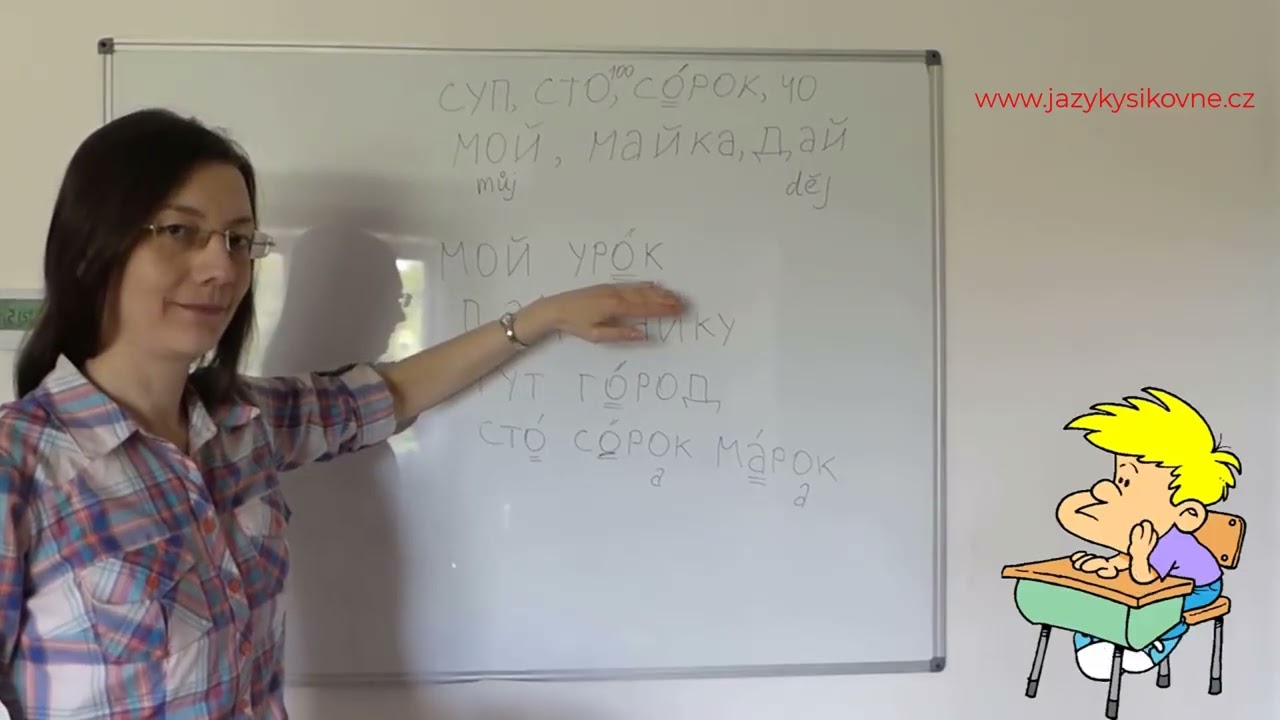 СУП, СТО, 100 СО́РОК, 40
МОЙ, МАЙКА, ДАЙ
můj děj
МОЙ УРО́К
ГО́РОД
СТО́ СО́РОК МА́РОК
а а
www.jazykysikovne.cz